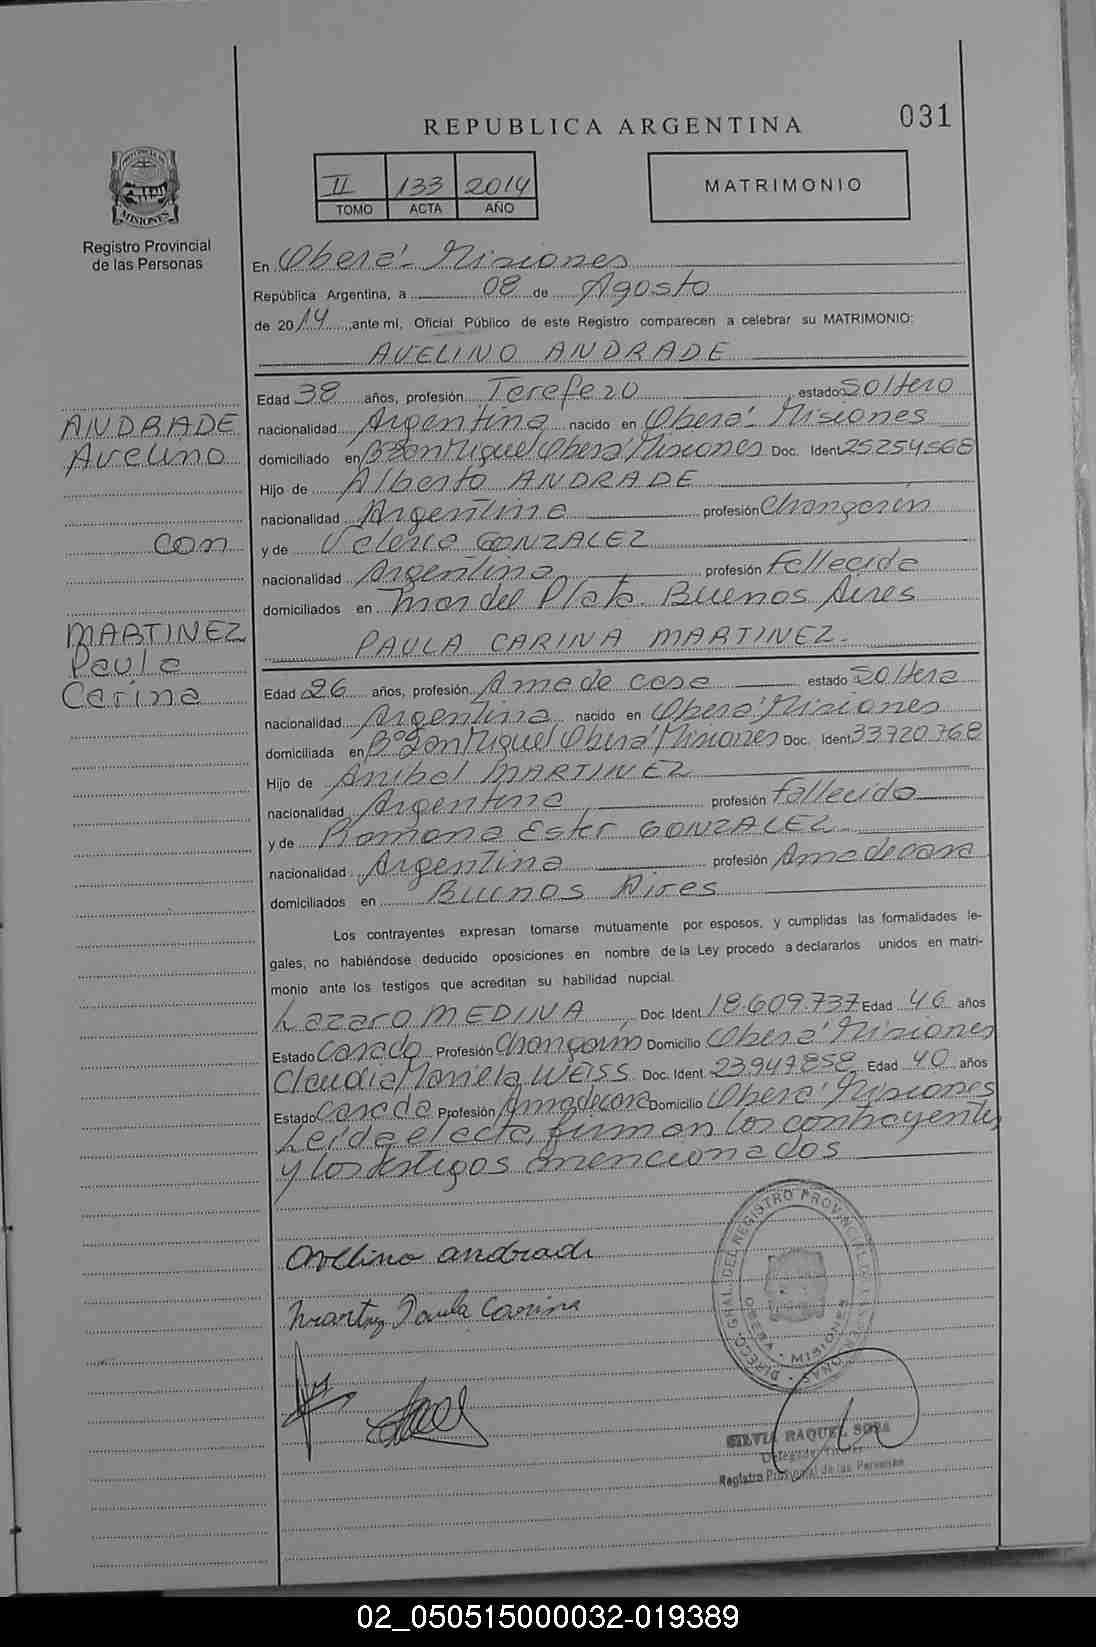 031
REPUBLICA ARGENTINA
II 133 2014
TOMO ACTA AÑO
MATRIMONIO
PROVINCIA DE
MISIONES
Registro Provincial
de las Personas
En Oberá - Misiones
República Argentina, a 08 de Agosto
de 2014, ante mí, Oficial Público de este Registro comparecen a celebrar su MATRIMONIO:
AVELINO ANDRADE
ANDRADE
Avelino
con
MARTINEZ
Paula
Carina
Edad 38 años, profesión Terefero estado Soltero
nacionalidad Argentina nacido en Oberá - Misiones
domiciliado en B° San Miguel Oberá Misiones Doc. Ident 25254568
Hijo de Alberto ANDRADE
nacionalidad Argentina profesión Changarín
y de Valeria GONZALEZ
nacionalidad Argentina profesión Fallecida
domiciliados en Mar del Plata - Buenos Aires
PAULA CARINA MARTINEZ.
Edad 26 años, profesión Ama de casa estado Soltera
nacionalidad Argentina nacido en Oberá Misiones
domiciliada en B° San Miguel Oberá Misiones Doc. Ident 33.720.768
Hijo de Anibal MARTINEZ
nacionalidad Argentina profesión fallecido
y de Ramona Ester GONZALEZ
nacionalidad Argentina profesión Ama de casa
domiciliados en Buenos Aires
Los contrayentes expresan tomarse mutuamente por esposos, y cumplidas las formalidades le-
gales, no habiéndose deducido oposiciones en nombre de la Ley procedo a declararlos unidos en matri-
monio ante los testigos que acreditan su habilidad nupcial.
Lazaro MEDINA, Doc. Ident. 18.609.737 Edad 46 años
Estado Casado Profesión Changarín Domicilio Oberá Misiones
Claudia Mariela WEISS Doc. Ident. 23.947.858 Edad 40 años
Estado Casada Profesión Ama de casa Domicilio Oberá Misiones
Leída el acta, firman los contrayentes
y los testigos mencionados
Avelino andrade
Martinez Paula Carina
DIRECC. GRAL. DEL REGISTRO PROVINCIAL DE LAS PERSONAS
OBERA - MISIONES
SILVIA RAQUEL SOSA
Delegada Titular
Registro Provincial de las Personas
02_050515000032-019389